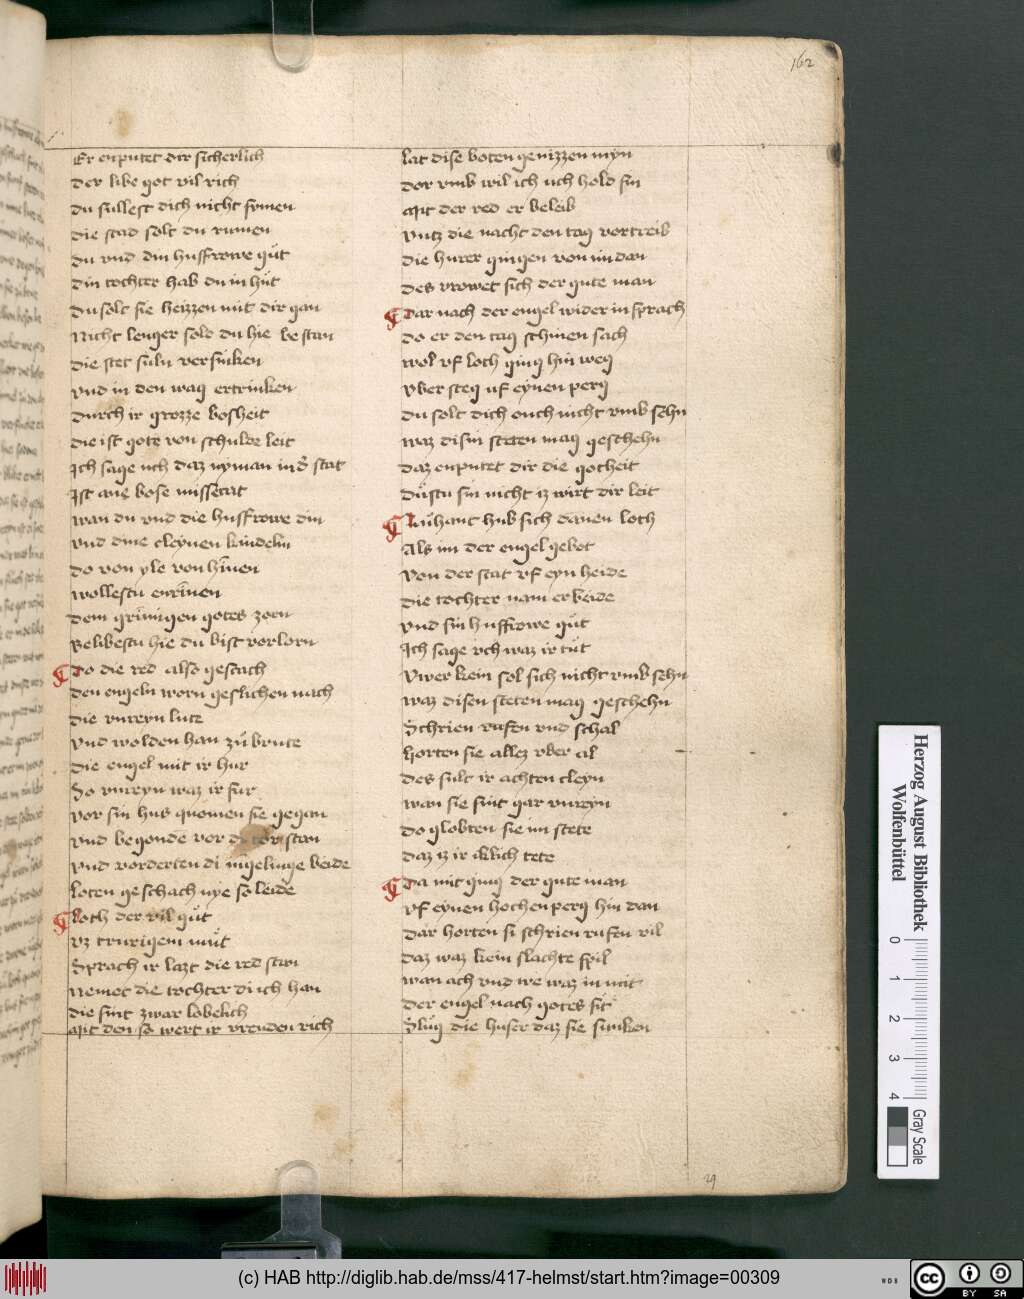 162
Er enputet dir sicherlich
der libe got vil rich
du sullest dich nicht sumen
die stad solt du rumen
du vnd din husfrowe gůt
din tochter hab du in hůt
du solt sie heizzen mit dir gan
Nicht lenger sold du hie be stan
die stet suln versinken
vnd in den wag ertrinken
durch ir grozze bosheit
die ist gote von schulde leit
Ich sage uch daz nyman in d' stat
Ist ane bose missetat
wan du vnd die husfrowe din
vnd dine cleynen kindelin
do von yle von hinnen
wollestu enrinnen
dem grimmigen gotes zorn
Belibestu hie du bist vorlorn
Do die red also geschach
den engeln worn geslichen nach
die vnreyn lute
vnd wolden han zů brute
die engel mit ir hur
So vnreyn waz ir fur
vor sin hus quomen sie gegan
vnd begonde vor di tor stan
vnd vorderten di iugelinge beide
loten geschach nye so leide
Loth der vil gůt
vz trurigem můt
Sprach ir lazt die red stan
Nemet die tochter di ich han
die sint zwar lobelich
Mit den so wert ir vreuden rich
lat dise boten genizzen myn
dor vmb wil ich uch hold sin
Mit der red er beleib
vntz die nacht den tag vortreib
die hurer gingen von im dan
des vrowet sich der gute man
Dar nach der engel wider in sprach
do er den tag schinen sach
wol vf loth ging hin weg
vber steg uf eynen perg
du solt dich ouch nicht vmb sehn
waz disin steten mag geschehn
daz enputet dir die gotheit
důstu sin nicht iz wirt dir leit
Zuhant hub sich dannen loth
Als im der engel gebot
von der stat vf eyn heide
die tochter nam er beide
vnd sin husfrowe gůt
Ich sage vch waz ir tůt
vwer kein sol sich nicht vmb sehn
waz disen steten mag geschehn
Schrien rufen vnd schal
horten sie allez vber al
des sult ir achten cleyn
wan sie sint gar vnreyn
do globten sie im stete
daz iz ir iklich tete
Da mit ging der gute man
vf eynen hochen perg hin dan
dar horten si schrien rufen vil
daz waz kein slachte spil
wan ach vnd we waz in mit
der engel nach gotes sit
Slůg die huser daz sie sunken
29
Herzog August Bibliothek
Wolfenbüttel
0 1 2 3 4
Gray Scale
(c) HAB http://diglib.hab.de/mss/417-helmst/start.htm?image=00309
WDB
cc BY SA